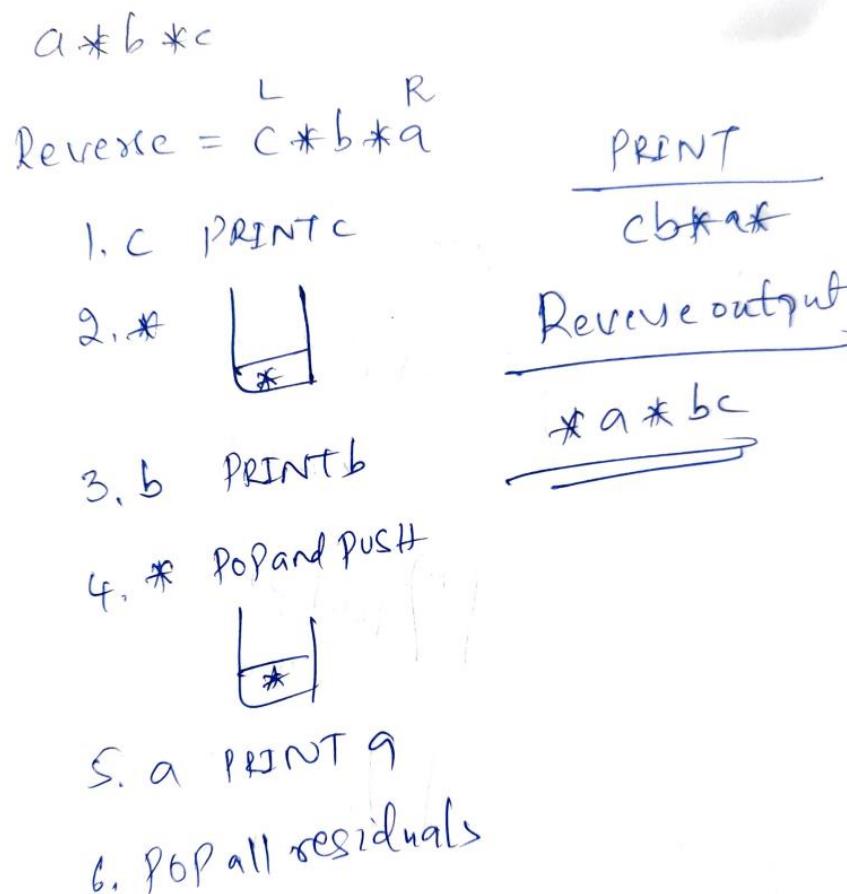 a*b*c
L R
Reverse = c*b*a
1. c PRINT c
2. *
*
3. b PRINT b
4. * POP and PUSH
*
5. a PRINT a
6. POP all residuals
PRINT
cb*a*
Reverse output
*a*bc